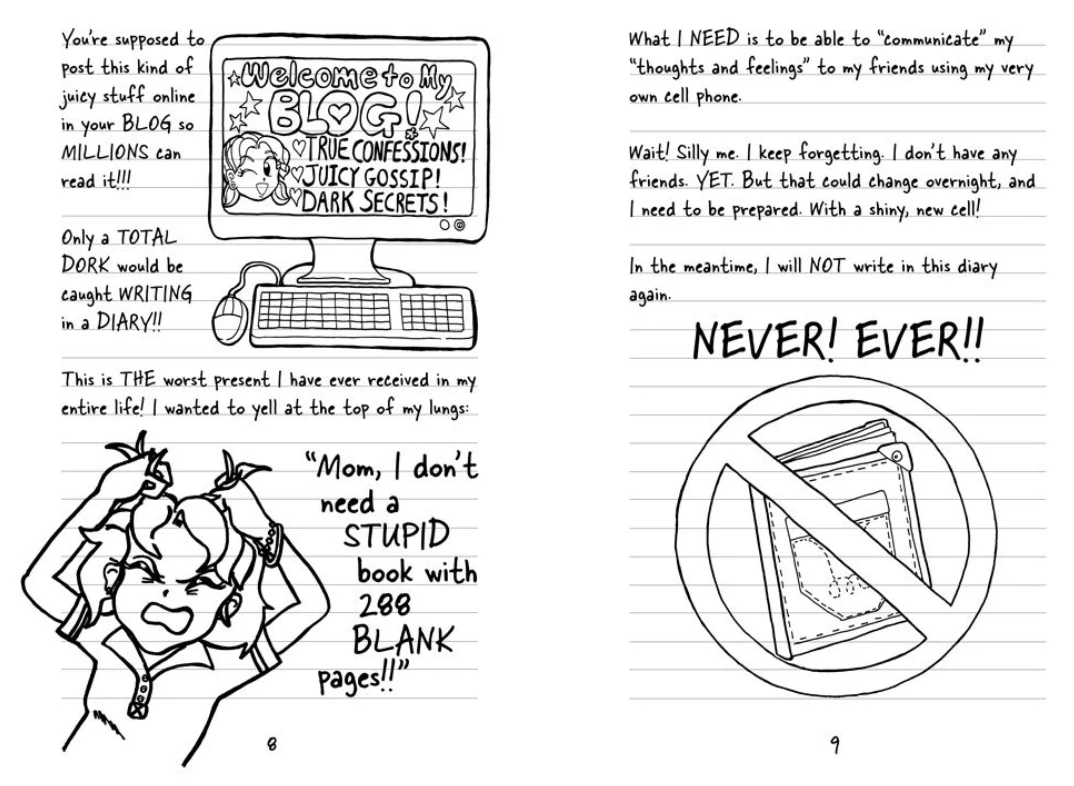 You're supposed to
post this kind of
juicy stuff online
in your BLOG so
MILLIONS can
read it!!!
Welcome to My
BLOG!
TRUE CONFESSIONS!
JUICY GOSSIP!
DARK SECRETS!
Only a TOTAL
DORK would be
caught WRITING
in a DIARY!!
This is THE worst present I have ever received in my
entire life! I wanted to yell at the top of my lungs:
"Mom, I don't
need a
STUPID
book with
288
BLANK
pages!!"
8
What I NEED is to be able to "communicate" my
"thoughts and feelings" to my friends using my very
own cell phone.
Wait! Silly me. I keep forgetting. I don't have any
friends. YET. But that could change overnight, and
I need to be prepared. With a shiny, new cell!
In the meantime, I will NOT write in this diary
again.
NEVER! EVER!!
9